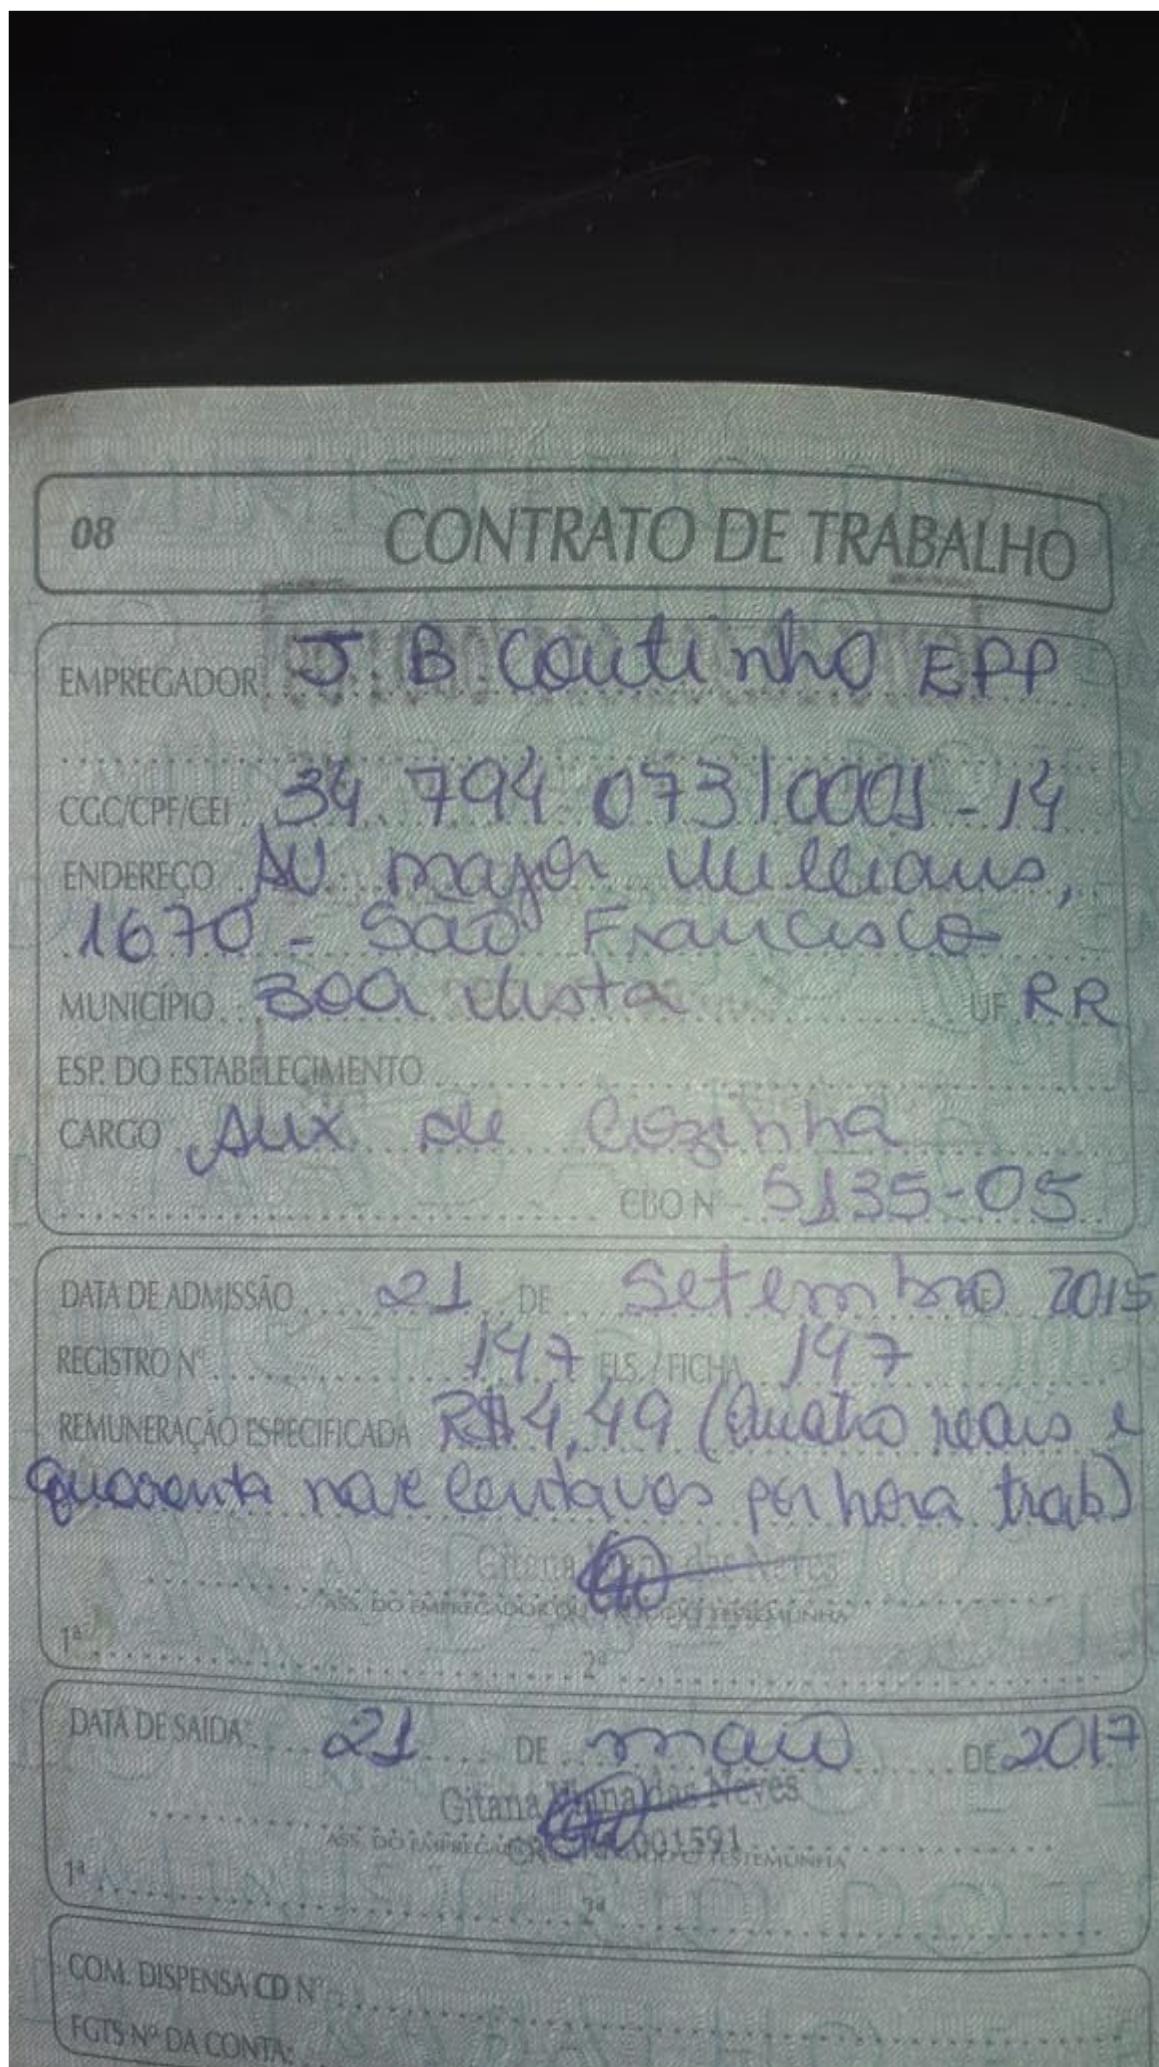 08 CONTRATO DE TRABALHO
EMPREGADOR J. B Coutinho EPP
CGC/CPF/CEI 34 794 073/0001-14
ENDEREÇO AV major Williams,
1670 - São Francisco
MUNICÍPIO Boa Vista UF RR
ESP. DO ESTABELECIMENTO
CARGO Aux de Cozinha
CBO Nº 5135-05
DATA DE ADMISSÃO 21 DE Setembro 2015
REGISTRO Nº 147 FLS./FICHA 147
REMUNERAÇÃO ESPECIFICADA R$4,49 (Quatro reais e
quarenta nove centavos por hora trab)
Gitana das Neves
ASS. DO EMPREGADOR OU TESTEMUNHA
1ª 2ª
DATA DE SAÍDA 21 DE maio DE 2017
Gitana Viana das Neves
001591
ASS. DO EMPREGADOR TESTEMUNHA
1ª 2ª
COM. DISPENSA CD Nº
FGTS Nº DA CONTA: